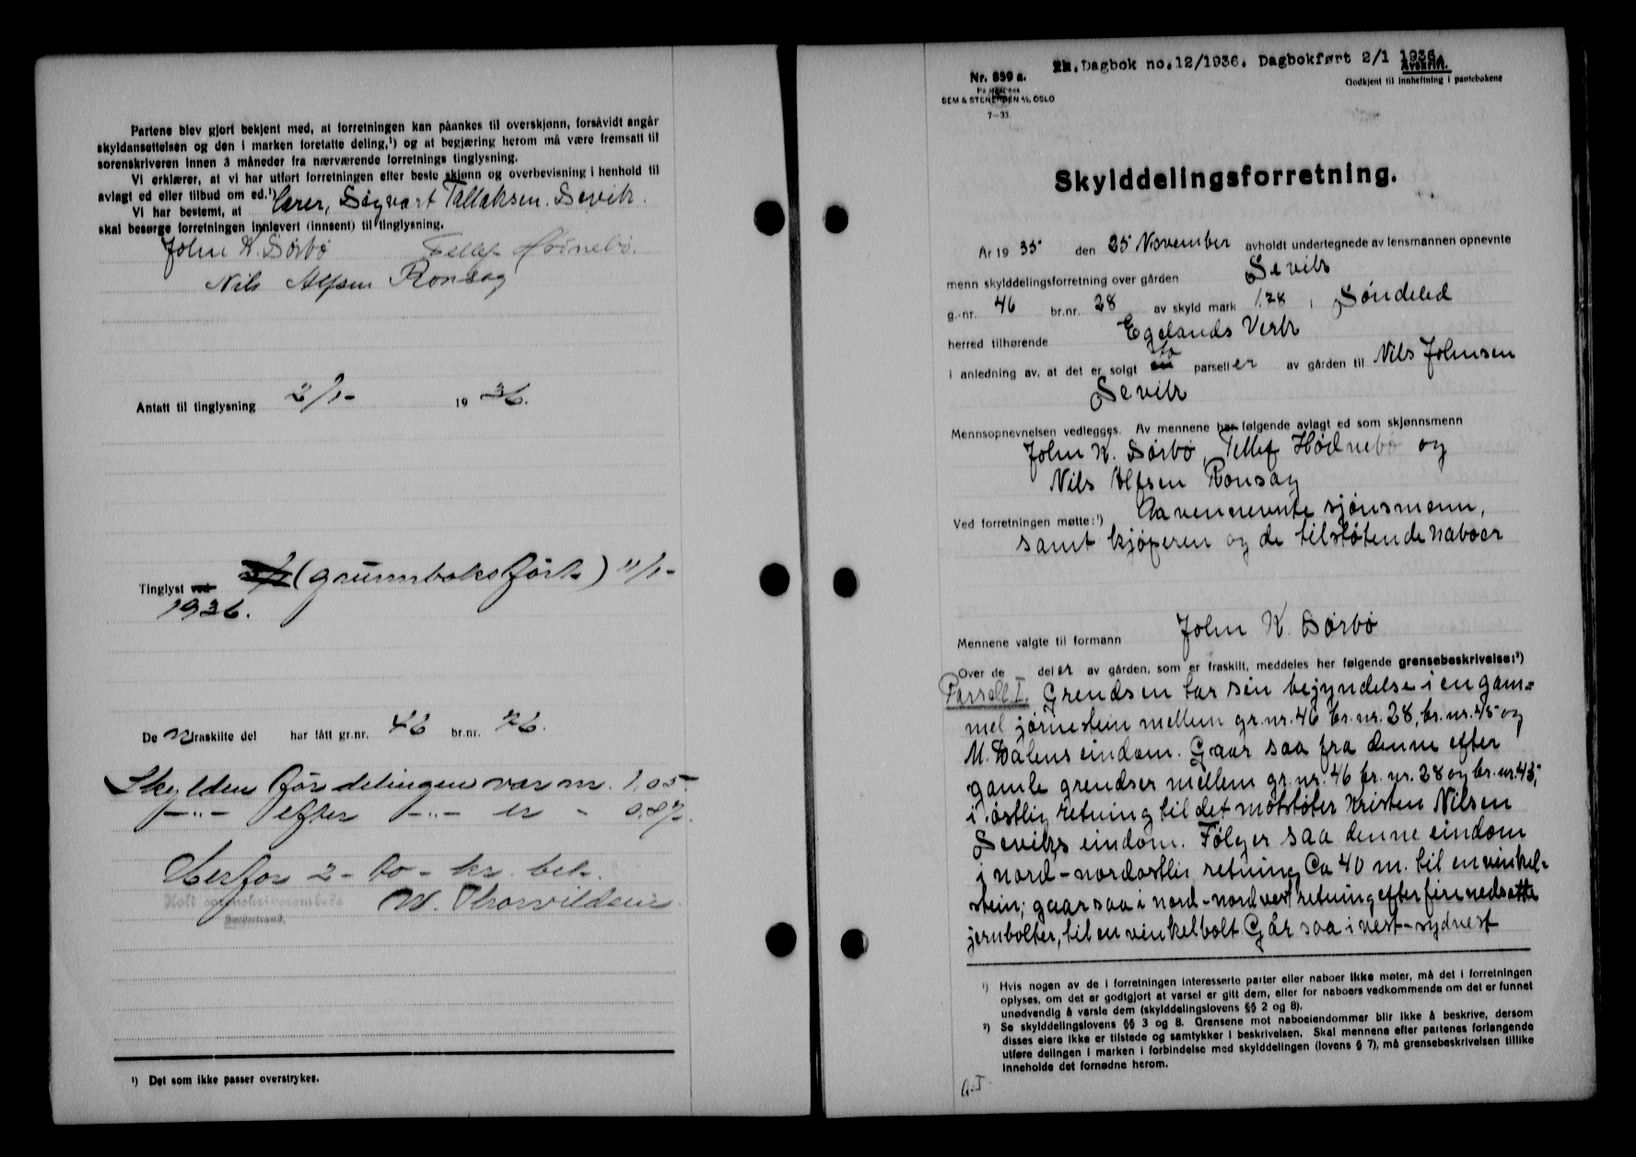 Partene blev gjort bekjent med, at forretningen kan påankes til overskjønn, forsåvidt angår
skyldansettelsen og den i marken foretatte deling,¹) og at begjæring herom må være fremsatt til
sorenskriveren innen 3 måneder fra nærværende forretnings tinglysning.
Vi erklærer, at vi har utført forretningen efter beste skjønn og overbevisning i henhold til
avlagt ed eller tilbud om ed.¹)
Vi har bestemt, at Sigvart Tallaksen. Sevik.
skal besørge forretningen innlevert (innsent) til tinglysning.
John K. Sørbø Tellef Hødnebø.
Nils Alfsen Ronsag
Antatt til tinglysning 2/1- 1936.
Tinglyst ved (grunnboksført) 11/1-
1936.
De fraskilte del har fått gr.nr. 46 br.nr. 76.
Skylden før delingen var m. 1,05
-"- efter -"- er -
Herfor 2- to - kr. bet.
Holt sorenskriverembede
W. Thorvildsen
¹) Det som ikke passer overstrykes.
Nr. 839 a.
SEM & STENERSEN A/S, OSLO
7-33.
Dagbok no.12/1936. Dagbokført 2/1 1936.
Avskrift.
Godkjent til innheftning i pantebøkene
Skylddelingsforretning.
År 1935 den 25 November avholdt undertegnede av lensmannen opnevnte
menn skylddelingsforretning over gården Sevik
g.-nr. 46 br.nr. 28 av skyld mark 1.28 i Søndeled
herred tilhørende Egelands Verk
i anledning av, at det er solgt to parseller av gården til Nils Johnsen
Sevik
Mennsopnevnelsen vedlegges. Av mennene har følgende avlagt ed som skjønnsmenn
John K. Sørbø, Tellef Hødnebø og
Nils Alfsen Ronsag
Ved forretningen møtte:¹) Aavennevnte sjønsmenn,
samt kjøperen og de tilstøtende naboer
Mennene valgte til formann John K. Sørbø
Over de deler av gården, som er fraskilt, meddeles her følgende grensebeskrivelse:²)
Parsell I. Grendsen har sin begyndelse i en gam=
mel jørnestein mellem gr.nr. 46 br.nr. 28, br.nr. 45 og
M. Dalens eindom. Gaar saa fra denne efter
gamle grendser mellem gr.nr. 46 br.nr. 28 og br.nr. 43,
i østlig retning til det motstøter Kristen Nilsen
Seviks eindom. Følger saa denne eindom
i nord-nordostlig retning Ca 40 m. til en vinkel=
stein; gaar saa i nord-nordvest retning efter fire nedsatte
jernbolter, til en vinkelbolt. Går saa i vest-sydvest
¹) Hvis nogen av de i forretningen interesserte parter eller naboer ikke møter, må det i forretningen
oplyses, om det er godtgjort at varsel er gitt dem, eller for naboers vedkommende om det er funnet
unødvendig å varsle dem (skylddelingslovens §§ 2 og 8).
²) Se skylddelingslovens §§ 3 og 8. Grensene mot naboeiendommer blir ikke å beskrive, dersom
disses eiere ikke er tilstede og samtykker i beskrivelsen. Skal mennene efter partenes forlangende
utføre delingen i marken i forbindelse med skylddelingen (lovens § 7), må grensebeskrivelsen tillike
inneholde det fornødne herom.